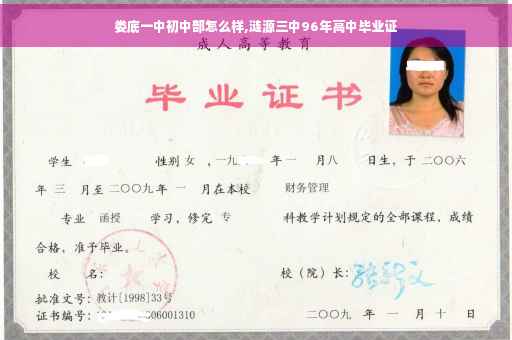 娄底一中初中部怎么样,涟源三中96年高中毕业证
成人高等教育
毕业证书
学生 性别 女 ，一九 年一 月八 日生，于二〇〇六
年 三 月至二〇〇九年 一 月在本校 财务管理
专业 函授 学习，修完 专 科教学计划规定的全部课程，成绩
合格，准予毕业。
校 名： 校（院）长：
批准文号：教计[1998]33号
证书编号： 06001310 二〇〇九 年 一 月 十 日